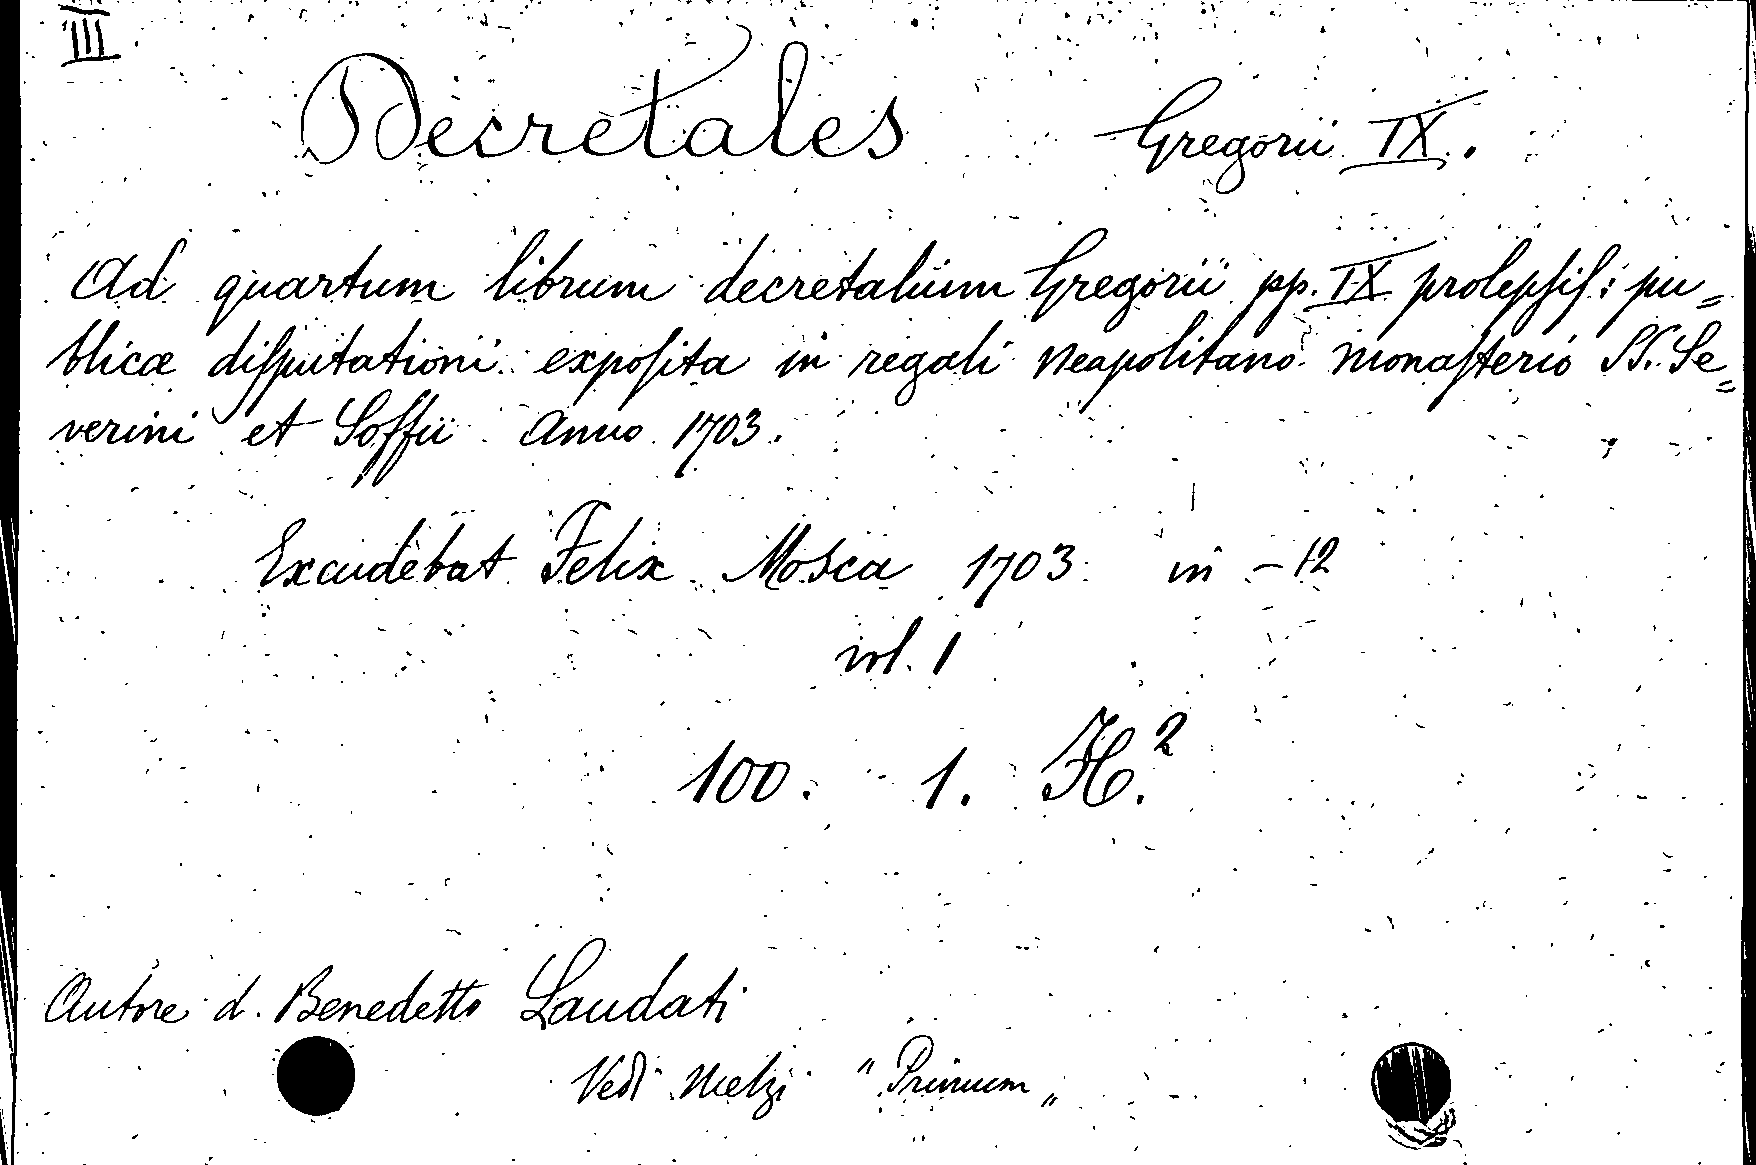 III
Decretales Gregorii IX.
Ad quartum librum decretalium Gregorii pp. IX prolepſiſ: pu„
blicæ diſputationi expoſita in regali Neapolitano monaſterio SS. Se„
verini et Soſſii anno 1703.
Excudebat Felix Mosca 1703 in -12
vol. 1
100. 1. H.²
Autore d. Benedetto Laudati
Vedi Melzi "Primum„